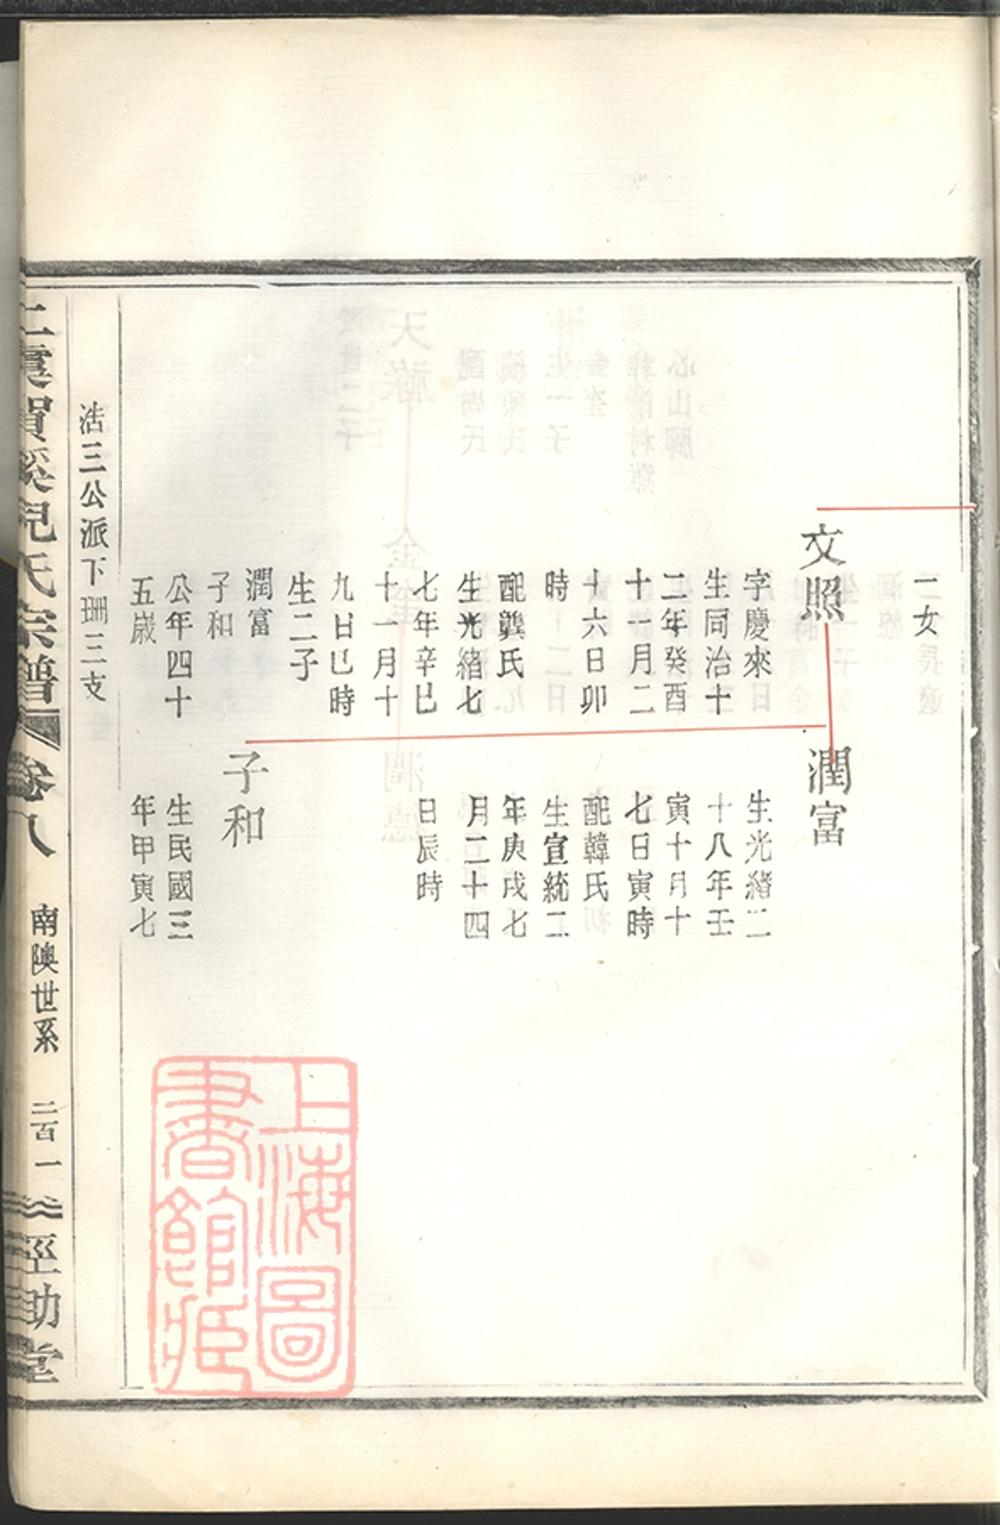 二女
文照
字慶來
生同治十
二年癸酉
十一月二
十六日卯
時
配龔氏
生光緒七
七年辛巳
十一月十
九日巳時
生二子
潤富
子和
公年四十
五歲
潤富
生光緒二
十八年壬
寅十月十
七日寅時
配韓氏
生宣統二
年庚戌七
月二十四
日辰時
子和
生民國三
年甲寅七
浩三公派下珊三支
上虞賀溪兒氏宗譜
卷八
南陳世系
二百一
亞助堂
上海圖
書館藏